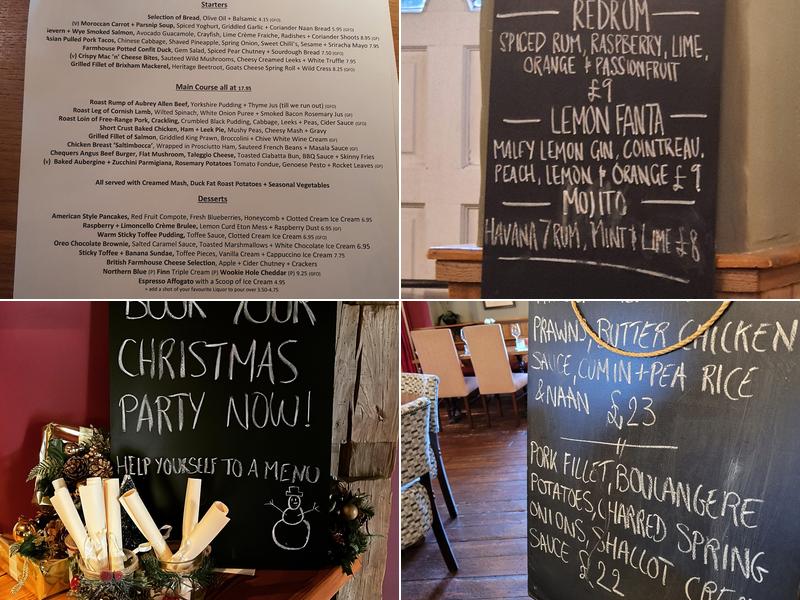 Starters
Selection of Bread, Olive Oil + Balsamic 4.15 (GFO)
(v) Moroccan Carrot + Parsnip Soup, Spiced Yoghurt, Griddled Garlic + Coriander Naan Bread 5.95 (GFO)
+ Wye Smoked Salmon, Avocado Guacamole, Crayfish, Lime Crème Fraiche, Radishes + Coriander Shoots 8.95 (GF)
Asian Pulled Pork Tacos, Chinese Cabbage, Shaved Pineapple, Spring Onion, Sweet Chilli's, Sesame + Sriracha Mayo 7.95
Farmhouse Potted Confit Duck, Gem Salad, Spiced Pear Chutney + Sourdough Bread 7.50 (GFO)
(v) Crispy Mac 'n' Cheese Bites, Sauteed Wild Mushrooms, Cheesy Creamed Leeks + White Truffle 7.95
Grilled Fillet of Brixham Mackerel, Heritage Beetroot, Goats Cheese Spring Roll + Wild Cress 8.25 (GFO)
Main Course all at 17.95
Roast Rump of Aubrey Allen Beef, Yorkshire Pudding + Thyme Jus (till we run out) (GFO)
Roast Leg of Cornish Lamb, Wilted Spinach, White Onion Puree + Smoked Bacon Rosemary Jus (GF)
Roast Loin of Free-Range Pork, Crackling, Crumbled Black Pudding, Cabbage, Leeks + Peas, Cider Sauce (GFO)
Short Crust Baked Chicken, Ham + Leek Pie, Mushy Peas, Cheesy Mash + Gravy
Grilled Fillet of Salmon, Griddled King Prawn, Broccolini + Chive White Wine Cream (GF)
Chicken Breast 'Saltimbocca', Wrapped in Prosciutto Ham, Sauteed French Beans + Masala Sauce (GF)
Chequers Angus Beef Burger, Flat Mushroom, Taleggio Cheese, Toasted Ciabatta Bun, BBQ Sauce + Skinny Fries
(v) Baked Aubergine + Zucchini Parmigiana, Rosemary Potatoes Tomato Fondue, Genoese Pesto + Rocket Leaves (GF)
All served with Creamed Mash, Duck Fat Roast Potatoes + Seasonal Vegetables
Desserts
American Style Pancakes, Red Fruit Compote, Fresh Blueberries, Honeycomb + Clotted Cream Ice Cream 6.95
Raspberry + Limoncello Crème Brulee, Lemon Curd Eton Mess + Raspberry Dust 6.95 (GF)
Warm Sticky Toffee Pudding, Toffee Sauce, Clotted Cream Ice Cream 6.95 (GFO)
Oreo Chocolate Brownie, Salted Caramel Sauce, Toasted Marshmallows + White Chocolate Ice Cream 6.95
Sticky Toffee + Banana Sundae, Toffee Pieces, Vanilla Cream + Cappuccino Ice Cream 7.75
British Farmhouse Cheese Selection, Apple + Cider Chutney + Crackers
Northern Blue (P) Finn Triple Cream (P) Wookie Hole Cheddar (P) 9.25 (GFO)
Espresso Affogato with a Scoop of Ice Cream 4.95
+ add a shot of your favourite Liquor to pour over 3.50-4.75
REDRUM
SPICED RUM, RASPBERRY, LIME,
ORANGE & PASSIONFRUIT
£9
LEMON FANTA
MALFY LEMON GIN, COINTREAU,
PEACH, LEMON & ORANGE £9
MOJITO
HAVANA 7 RUM, MINT & LIME £8
BOOK YOUR
CHRISTMAS
PARTY NOW!
HELP YOURSELF TO A MENU
PRAWNS, BUTTER CHICKEN
SAUCE, CUMIN + PEA RICE
& NAAN £23
PORK FILLET, BOULANGERE
POTATOES, CHARRED SPRING
ONIONS, SHALLOT
SAUCE £22